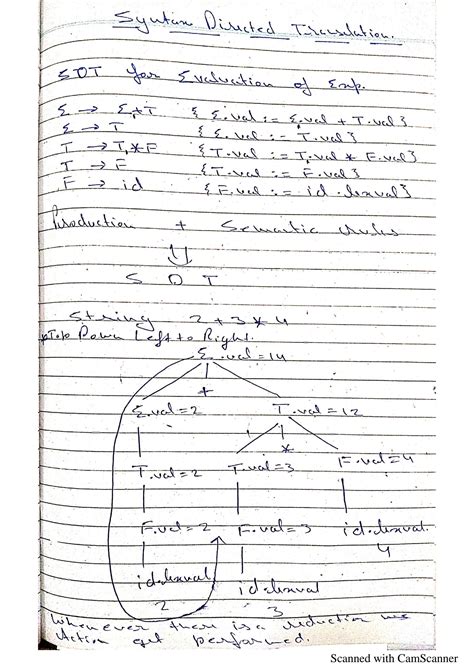 Syntax Directed Translation.
SDT for Evaluation of Exp.
E → E₁+T { E.val := E.val + T.val }
E → T { E.val := T.val }
T → T₁*F { T.val := T₁.val * F.val }
T → F { T.val := F.val }
F → id { F.val := id.lexval }
Production + Semantic rules
⇓
S D T
String 2+3*4
Top Down Left to Right.
E.val=14
+
E.val=2 T.val=12
*
T.val=2 T.val=3 F.val=4
F.val=2 F.val=3 id.lexval
4
id.lexval id.lexval
2 3
Whenever there is a reduction
Action get performed.
Scanned with CamScanner